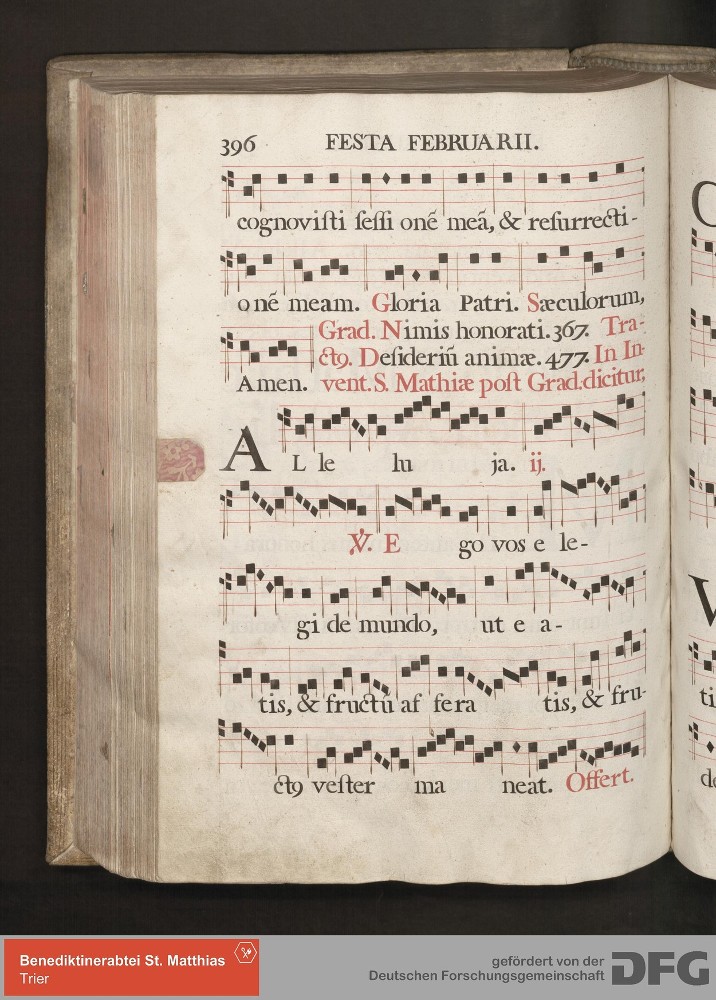 396 FESTA FEBRUARII.
cognovisti sessi onẽ meã, & resurrecti-
onẽ meam. Gloria Patri. Sæculorum,
Grad. Nimis honorati. 367. Tra-
ct9. Desideriũ animæ. 477. In In-
Amen. vent. S. Mathiæ post Grad: dicitur,
AL le lu ja. ij.
℣. E go vos e le-
gi de mundo, ut e a-
tis, & fructũ af fera tis, & fru-
ct9 vester ma neat. Offert.
Benediktinerabtei St. Matthias
Trier
gefördert von der
Deutschen Forschungsgemeinschaft DFG